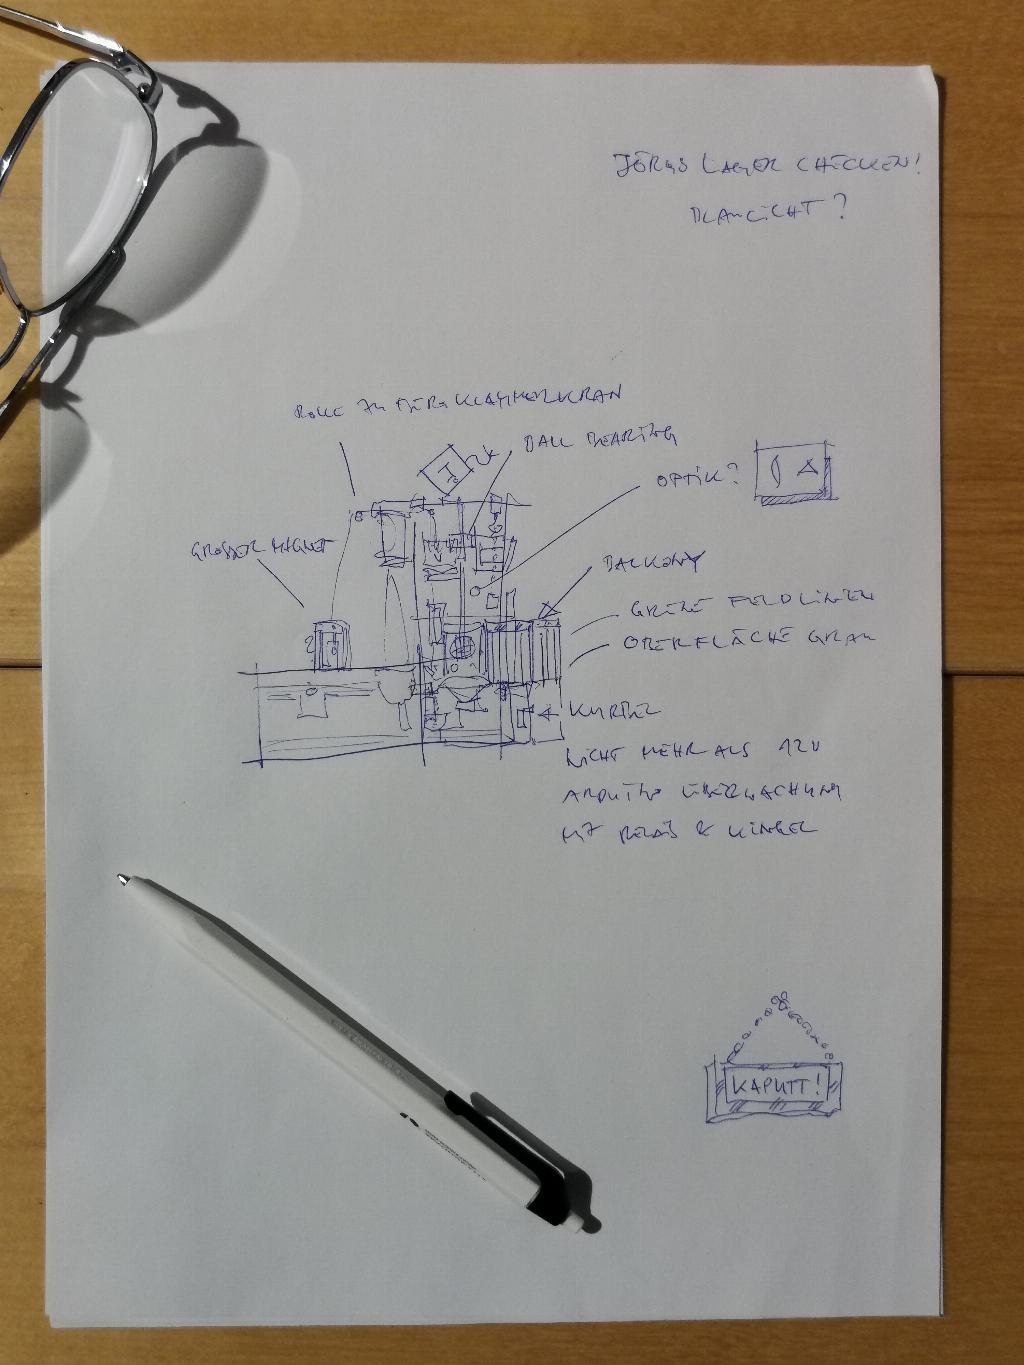 JÖRGS LAGER CHECKEN!
BLAULICHT?
ROLLE ZU BÜROKLAMMERKRAN
BALL BEARING
OPTIK?
GROSSER MAGNET
BALKONY
GRÜNE FELDLINIEN
OBERFLÄCHE GRAU
KURBEL
NICHT MEHR ALS 12V
ARDUINO ÜBERWACHUNG
MIT RELAIS & KLINGEL
KAPUTT!